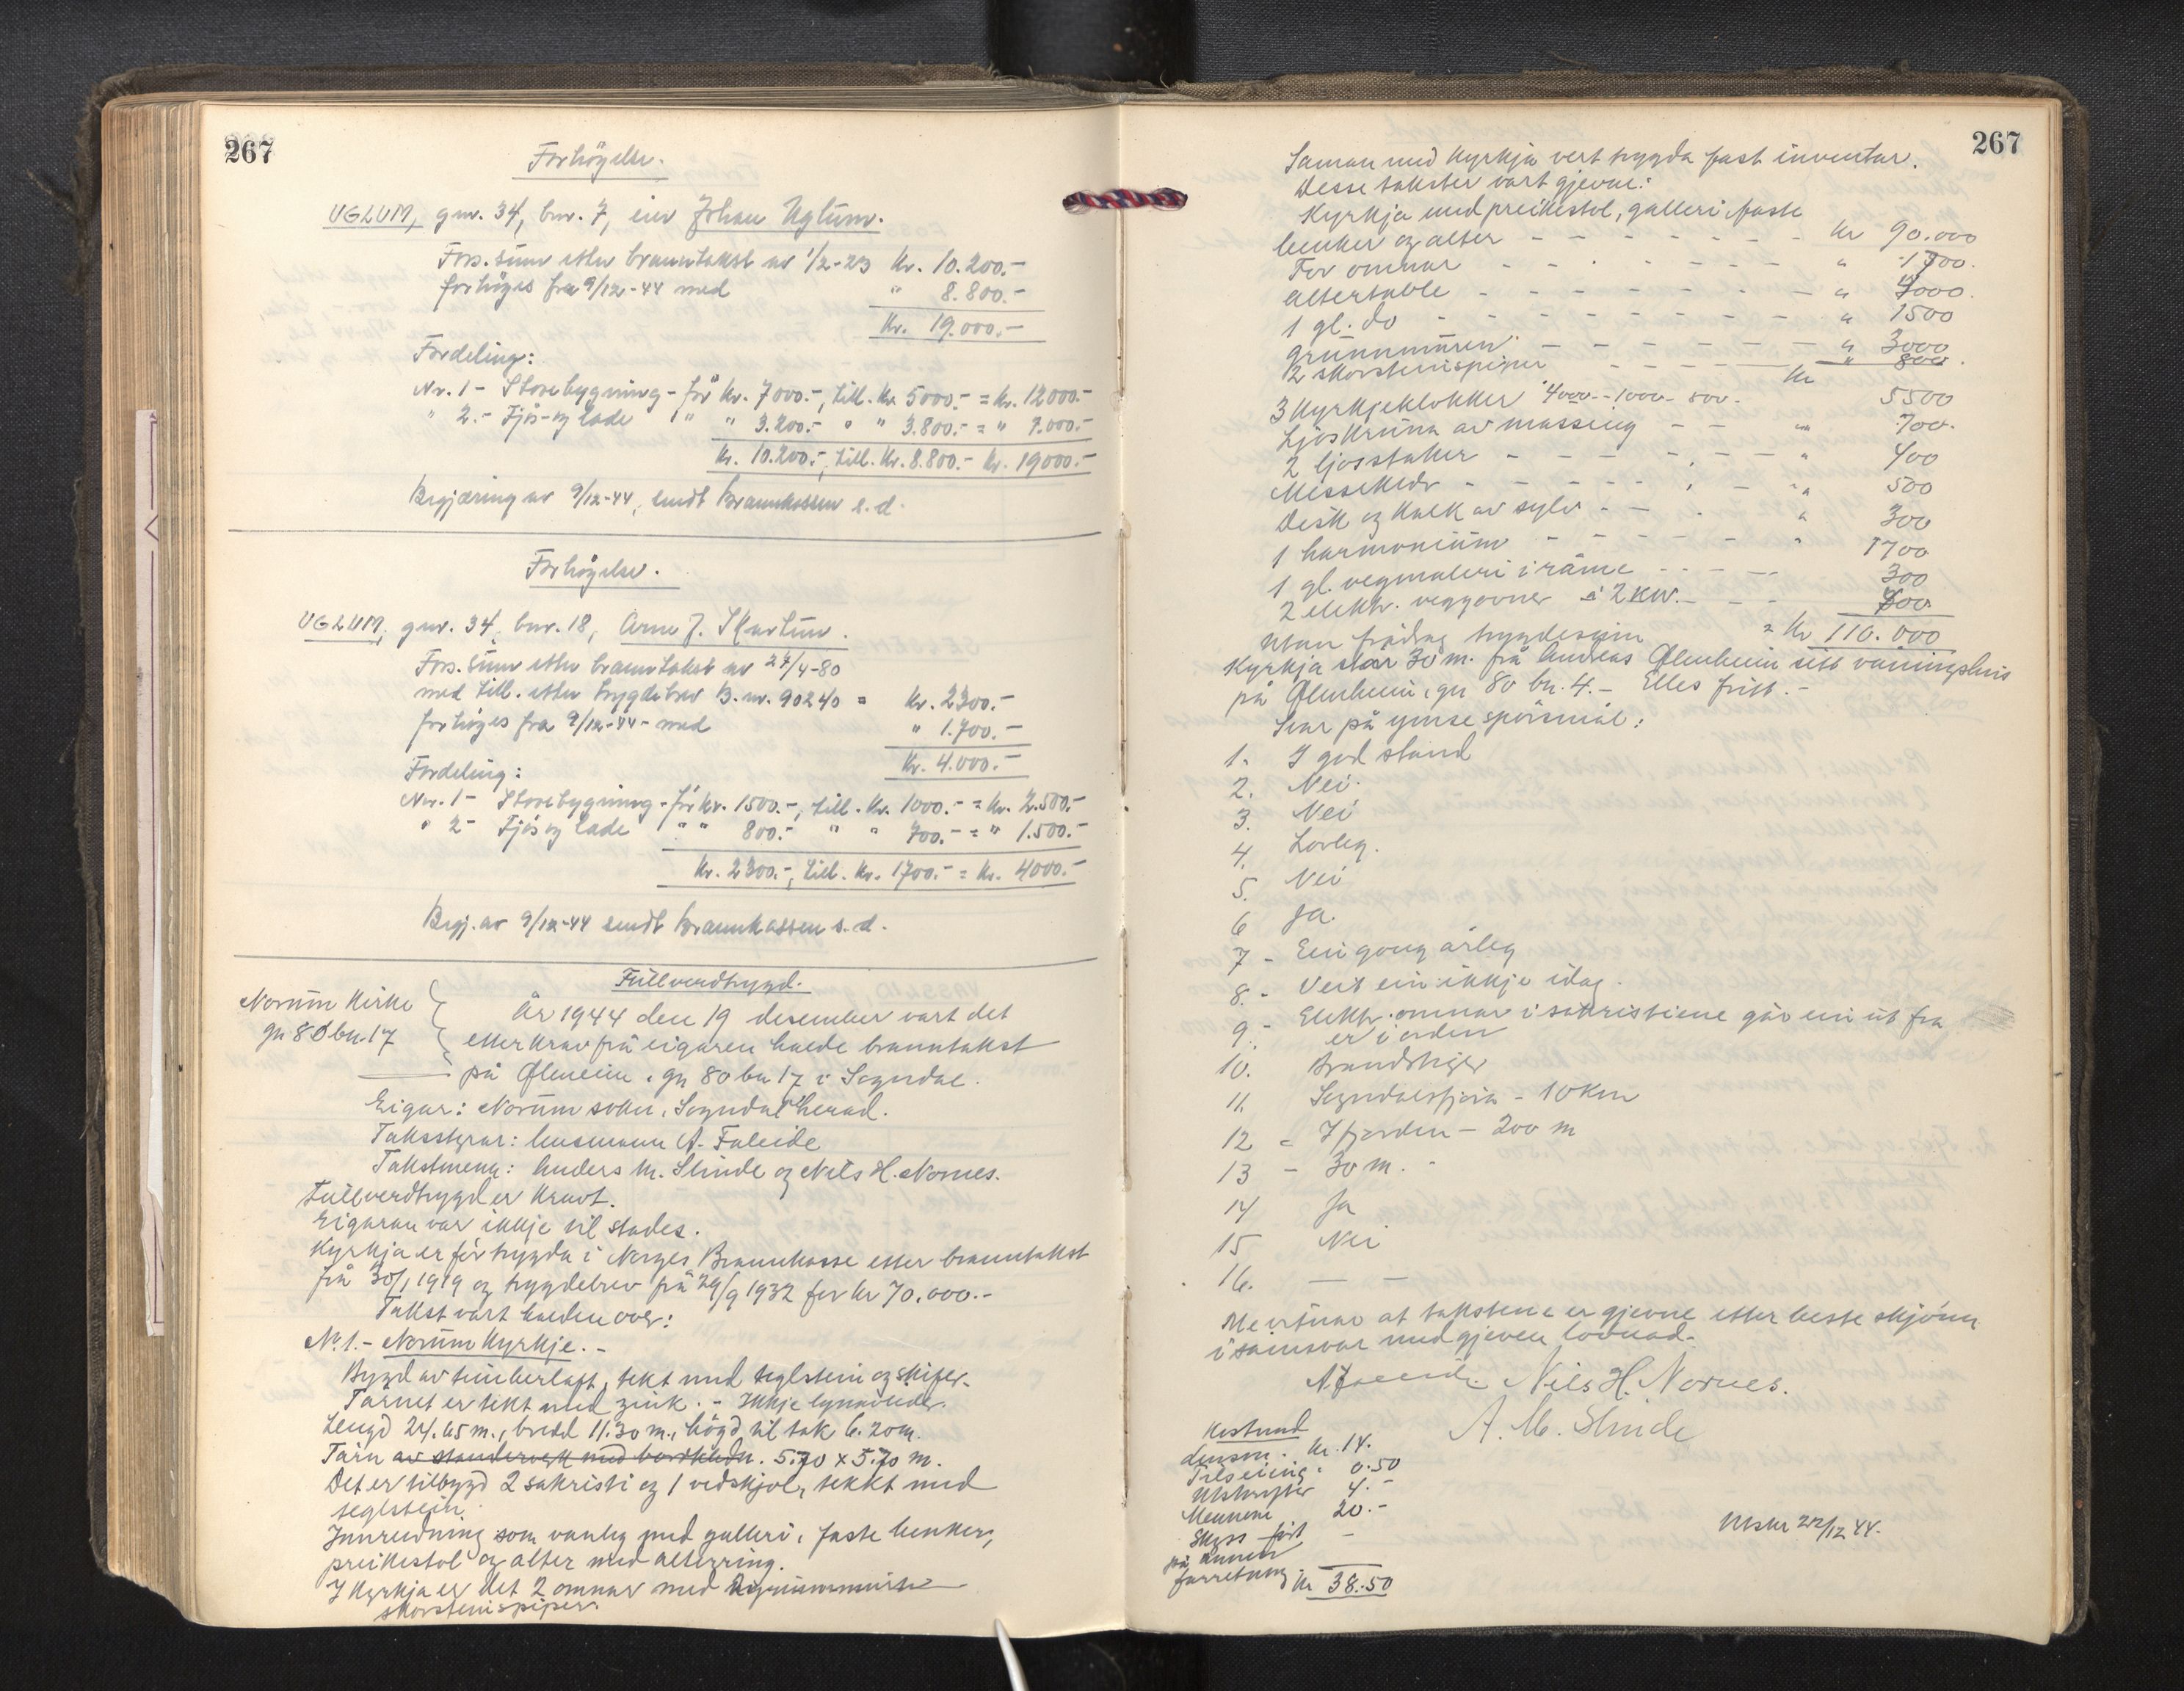 267
Forhögelse.
UGLUM, gnr. 34, bnr. 7, eier Johan Uglum.
Fors. sum etter branntakst av 1/2-23 Kr. 10.200.-
forhöges fra 9/12-44 med " 8.800.-
Kr. 19.000.-
Fordeling:
Nr. 1 - Stovebygning - för Kr. 7000.-, till. Kr. 5000.- = Kr. 12000.-
" 2.- Fjös- og lade " " 3.200.- " " 3.800.- = " 7.000.-
Kr. 10.200.-, till. Kr. 8.800.- Kr. 19000.-
Begjæring av 9/12-44, sendt Brannkassen s.d.
Forhögelse.
UGLUM, gnr. 34, bnr. 18, Arne J. Skartun.
Fors. sum etter branntakst av 27/4-80
med till. etter trygdebrev B. nr. 90240 = Kr. 2300.-
forhöges fra 9/12-44 - med " 1.700.-
Kr. 4.000.-
Fordeling:
Nr. 1 - Stovebygning - för Kr. 1500.-, till. Kr. 1000.- = Kr. 2.500.-
" 2 - Fjös og lade " " 800.- " " 700.- = " 1.500.-
Kr. 2300.-, till. Kr. 1700.- = Kr. 4000.-
Begj. av 9/12-44 sendt Brannkassen s.d.
Fullverdtrygd.
Norum Kirke
gn 80 bn. 17
År 1944 den 19 desember vart det
etter krav frå eigaren halde branntakst
på Ølmheim, gn 80 bn 17 i Sogndal.
Eigar: Norum sokn, Sogndal herad.
Takststyrar: lensmann A. Faleide
Takstmenn: Anders M. Slinde og Nils H. Nornes.
Fullverdtrygd er kravt.
Eigaran var ikkje til stades.
Kyrkja er för trygda i Norges Brannkasse etter branntakst
frå 30/1 1919 og trygdebrev frå 29/9 1932 for kr 70.000.-
Takst vart halden over:
No. 1.- Norum Kyrkje.-
Bygd av timberlaft, tekt med teglstein og skifer.
Tårnet er tekt med zink. - Ikkje lynavleder.
Lengd 24.65 m., bredd 11.30 m., högd til tak 6.20 m.
Tårn av standerverk med bordkledn. 5.70 x 5.70 m.
Det er tilbygd 2 sakristi og 1 vedskjol, tekkt med
teglstein.
Innreidning som vanleg med galleri, faste benker,
preikestol og alter med alterring.
I Kyrkja er det 2 omnar med
skorsteinspiper.
267
Saman med Kyrkja vert trygda fast inventar.
Desse takster vart gjevne:
Kyrkja med preikestol, galleri, faste
benker og alter - - - - - - - kr 90.000
For omnar - - - - - - - " 1700.
Altertable - - - - - - - " 4000.
1 gl. do - - - - - - - " 1500
Grunnmuren - - - - - - " 3000
2 skorsteinspiper - - - - - " 800.
3 Kyrkjeklokker 4000 - 1000 - 500.- Kr 5500
Ljoskruna av messing - - " 700.
2 ljosstaker - - - - - - " 400
Messeklede - - - - - - " 500
Disk og kalk av sylv - - - " 300
1 harmonium - - - - - " 1700
1 gl. vegmaleri i råme - - - - 300
2 elektr. veggovner à 2 KW. - - 600
Utan frådrag trygdesum = Kr 110.000
Kyrkja står 30 m. frå Andreas Ølmheim sitt våningshus
på Ølmheim, gn 80 bn. 4.- Elles fritt.-
Svar på ymse spörsmål:
1. I god stand
2. Nei.
3. Nei
4. Lovleg.
5. Nei
6 Ja.
7 - Ein gong årleg
8. - Veit ein ikkje idag.
9. - Elektr. omnar i sakristiene går ein ut fra
er i orden
10. Brandstiger
11. Sogndalsfjøra - 10 km
12 - I fjorden - 200 m
13 - 30 m. -
14 Ja
15 Nei
16. — —
Me vitnar at takstene er gjevne etter beste skjönn
i samsvar med gjeven lovnad.
A. Faleide. Nils H. Nornes.
A. M. Slinde
Kostnad
Lensm. kr. 14.
Tilseiing. 0.50
Utskrifter 4.-
Mennene 20.-
Skyss fört -
på annen
forretning
Kr 38.50
Utskr 22/12 44.